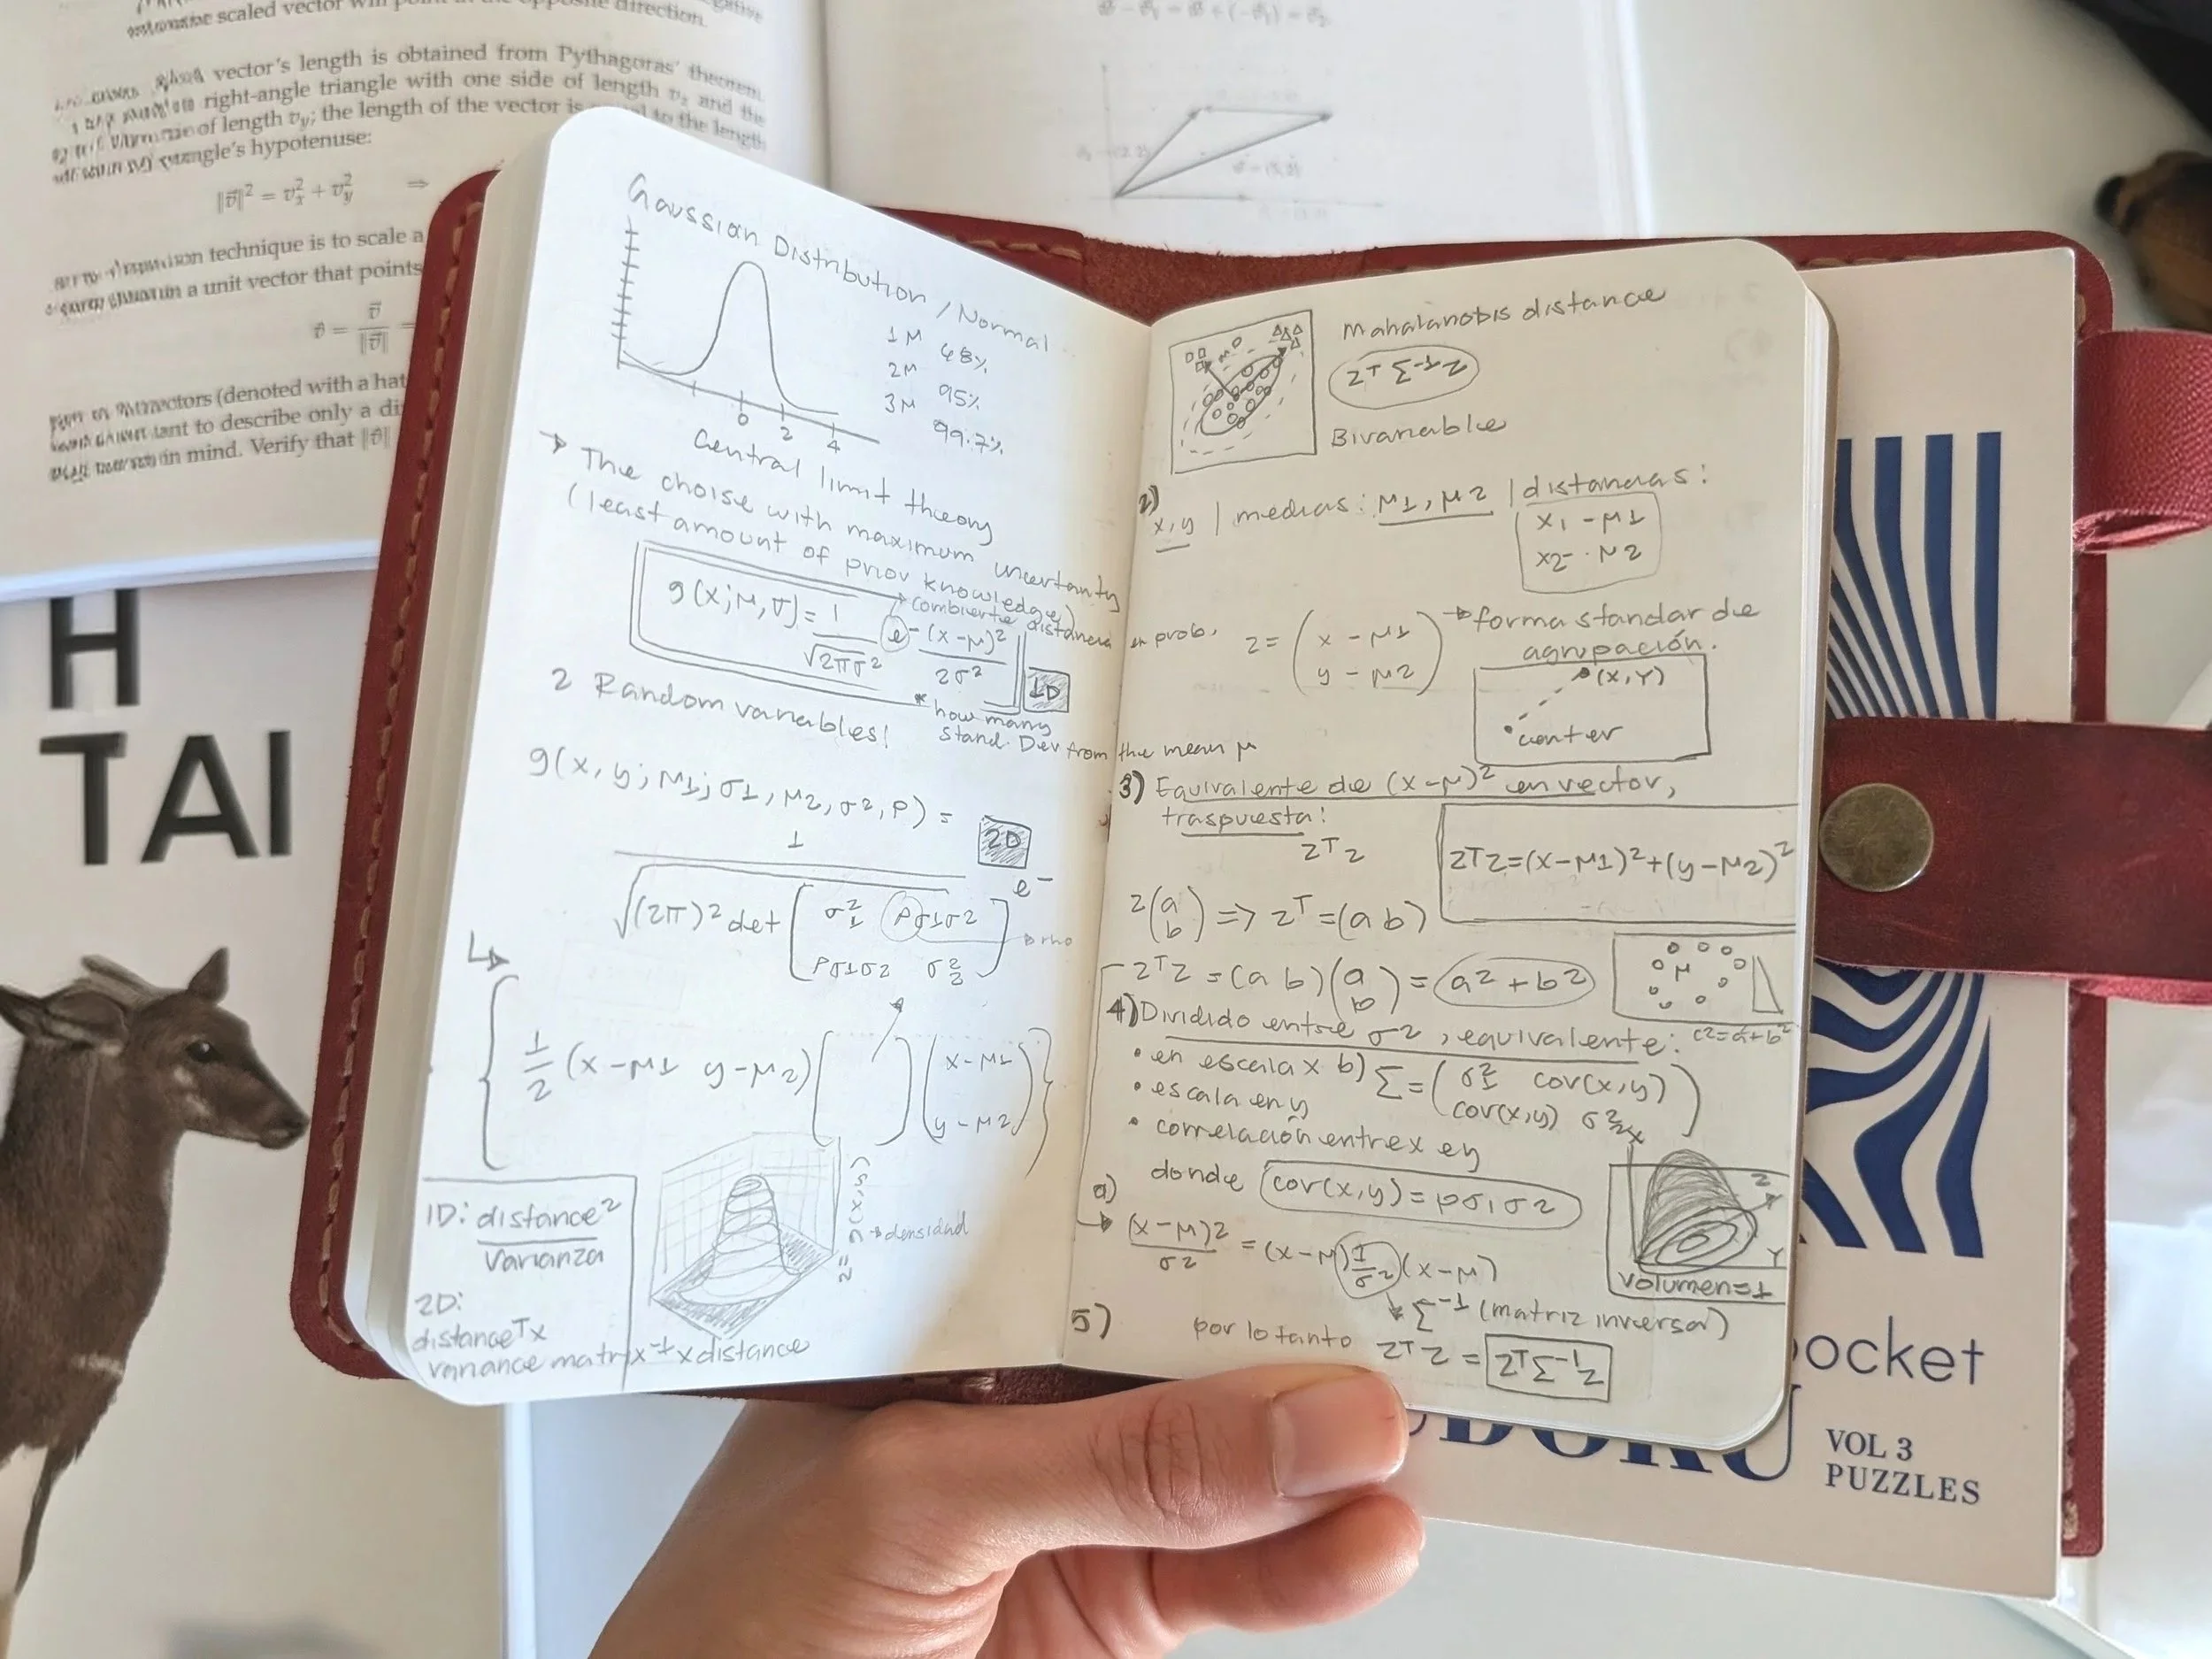 scaled vector will point in the opposite direction.
vector's length is obtained from Pythagoras' theorem.
right-angle triangle with one side of length v_x and the
of length v_y; the length of the vector is equal to the length
triangle's hypotenuse:
‖v⃗‖² = v_x² + v_y² ⇒
technique is to scale a
a unit vector that points
v̂ = v⃗ / ‖v⃗‖ =
vectors (denoted with a hat
want to describe only a di
in mind. Verify that ‖v̂‖
H
TAI
Gaussian Distribution / Normal
1μ 68%
2μ 95%
3μ 99.7%
0 2 4
Central limit theory
→ The choise with maximum uncertainty
(least amount of prior knowledge)
g(x;μ,σ) = 1/√2πσ² e^-(x-μ)²/2σ²
combierte distancia en prob.
1D
* how many
stand. Dev from the mean μ
2 Random variables!
g(x,y; μ1; σ1, μ2, σ2, ρ) =
2D
1
√(2π)² det [σ1² ρσ1σ2
ρσ1σ2 σ2²] e-
rho
{ 1/2 (x-μ1 y-μ2) [ ] (x-μ1
y-μ2) }
z = g(x,y)
→ densidad
1D: distance²
varianza
2D:
distanceᵀ x
variance matrix⁻¹ x distance
Mahalanobis distance
zᵀ Σ⁻¹ z
Bivariable
2) x,y | medias: μ1, μ2 | distancias:
x1 - μ1
x2 - μ2
z = (x - μ1
y - μ2)
→ forma standar de
agrupación.
(x,y)
center
3) Equivalente de (x-μ)² en vector,
traspuesta:
zᵀz
zᵀz=(x-μ1)²+(y-μ2)²
z(a
b) => zᵀ=(a b)
zᵀz = (a b)(a
b) = a²+b²
μ
c²=a²+b²
4) Dividido entre σ2, equivalente:
• en escala x b) Σ = (σ1² cov(x,y)
cov(x,y) σ2²)
• escala en y
• correlación entre x e y
donde cov(x,y) = ρσ1σ2
a)
(x-μ)2/σ2 = (x-μ) 1/σ2 (x-μ)
Σ⁻¹ (matriz inversa)
x
z
y
volumen=1
5) por lo tanto zᵀz = zᵀΣ⁻¹z
pocket
SUDOKU
VOL 3
PUZZLES